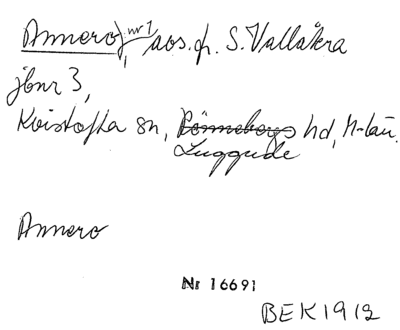 Annero, nr 1 avs. fr. S. Vallåkra
jbnr 3,
Kvistofta sn, Rönnebergs hd, M-län.
Luggude
Annero
Nr 16691
BEK 1912